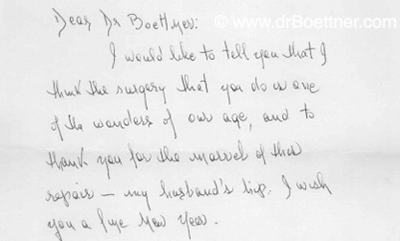 © www.drBoettner.com
Dear Dr Boettner:
I would like to tell you that I
think the surgery that you do is one
of the wonders of our age, and to
thank you for the marvel of this
repair — my husband's hip. I wish
you a fine New Year.